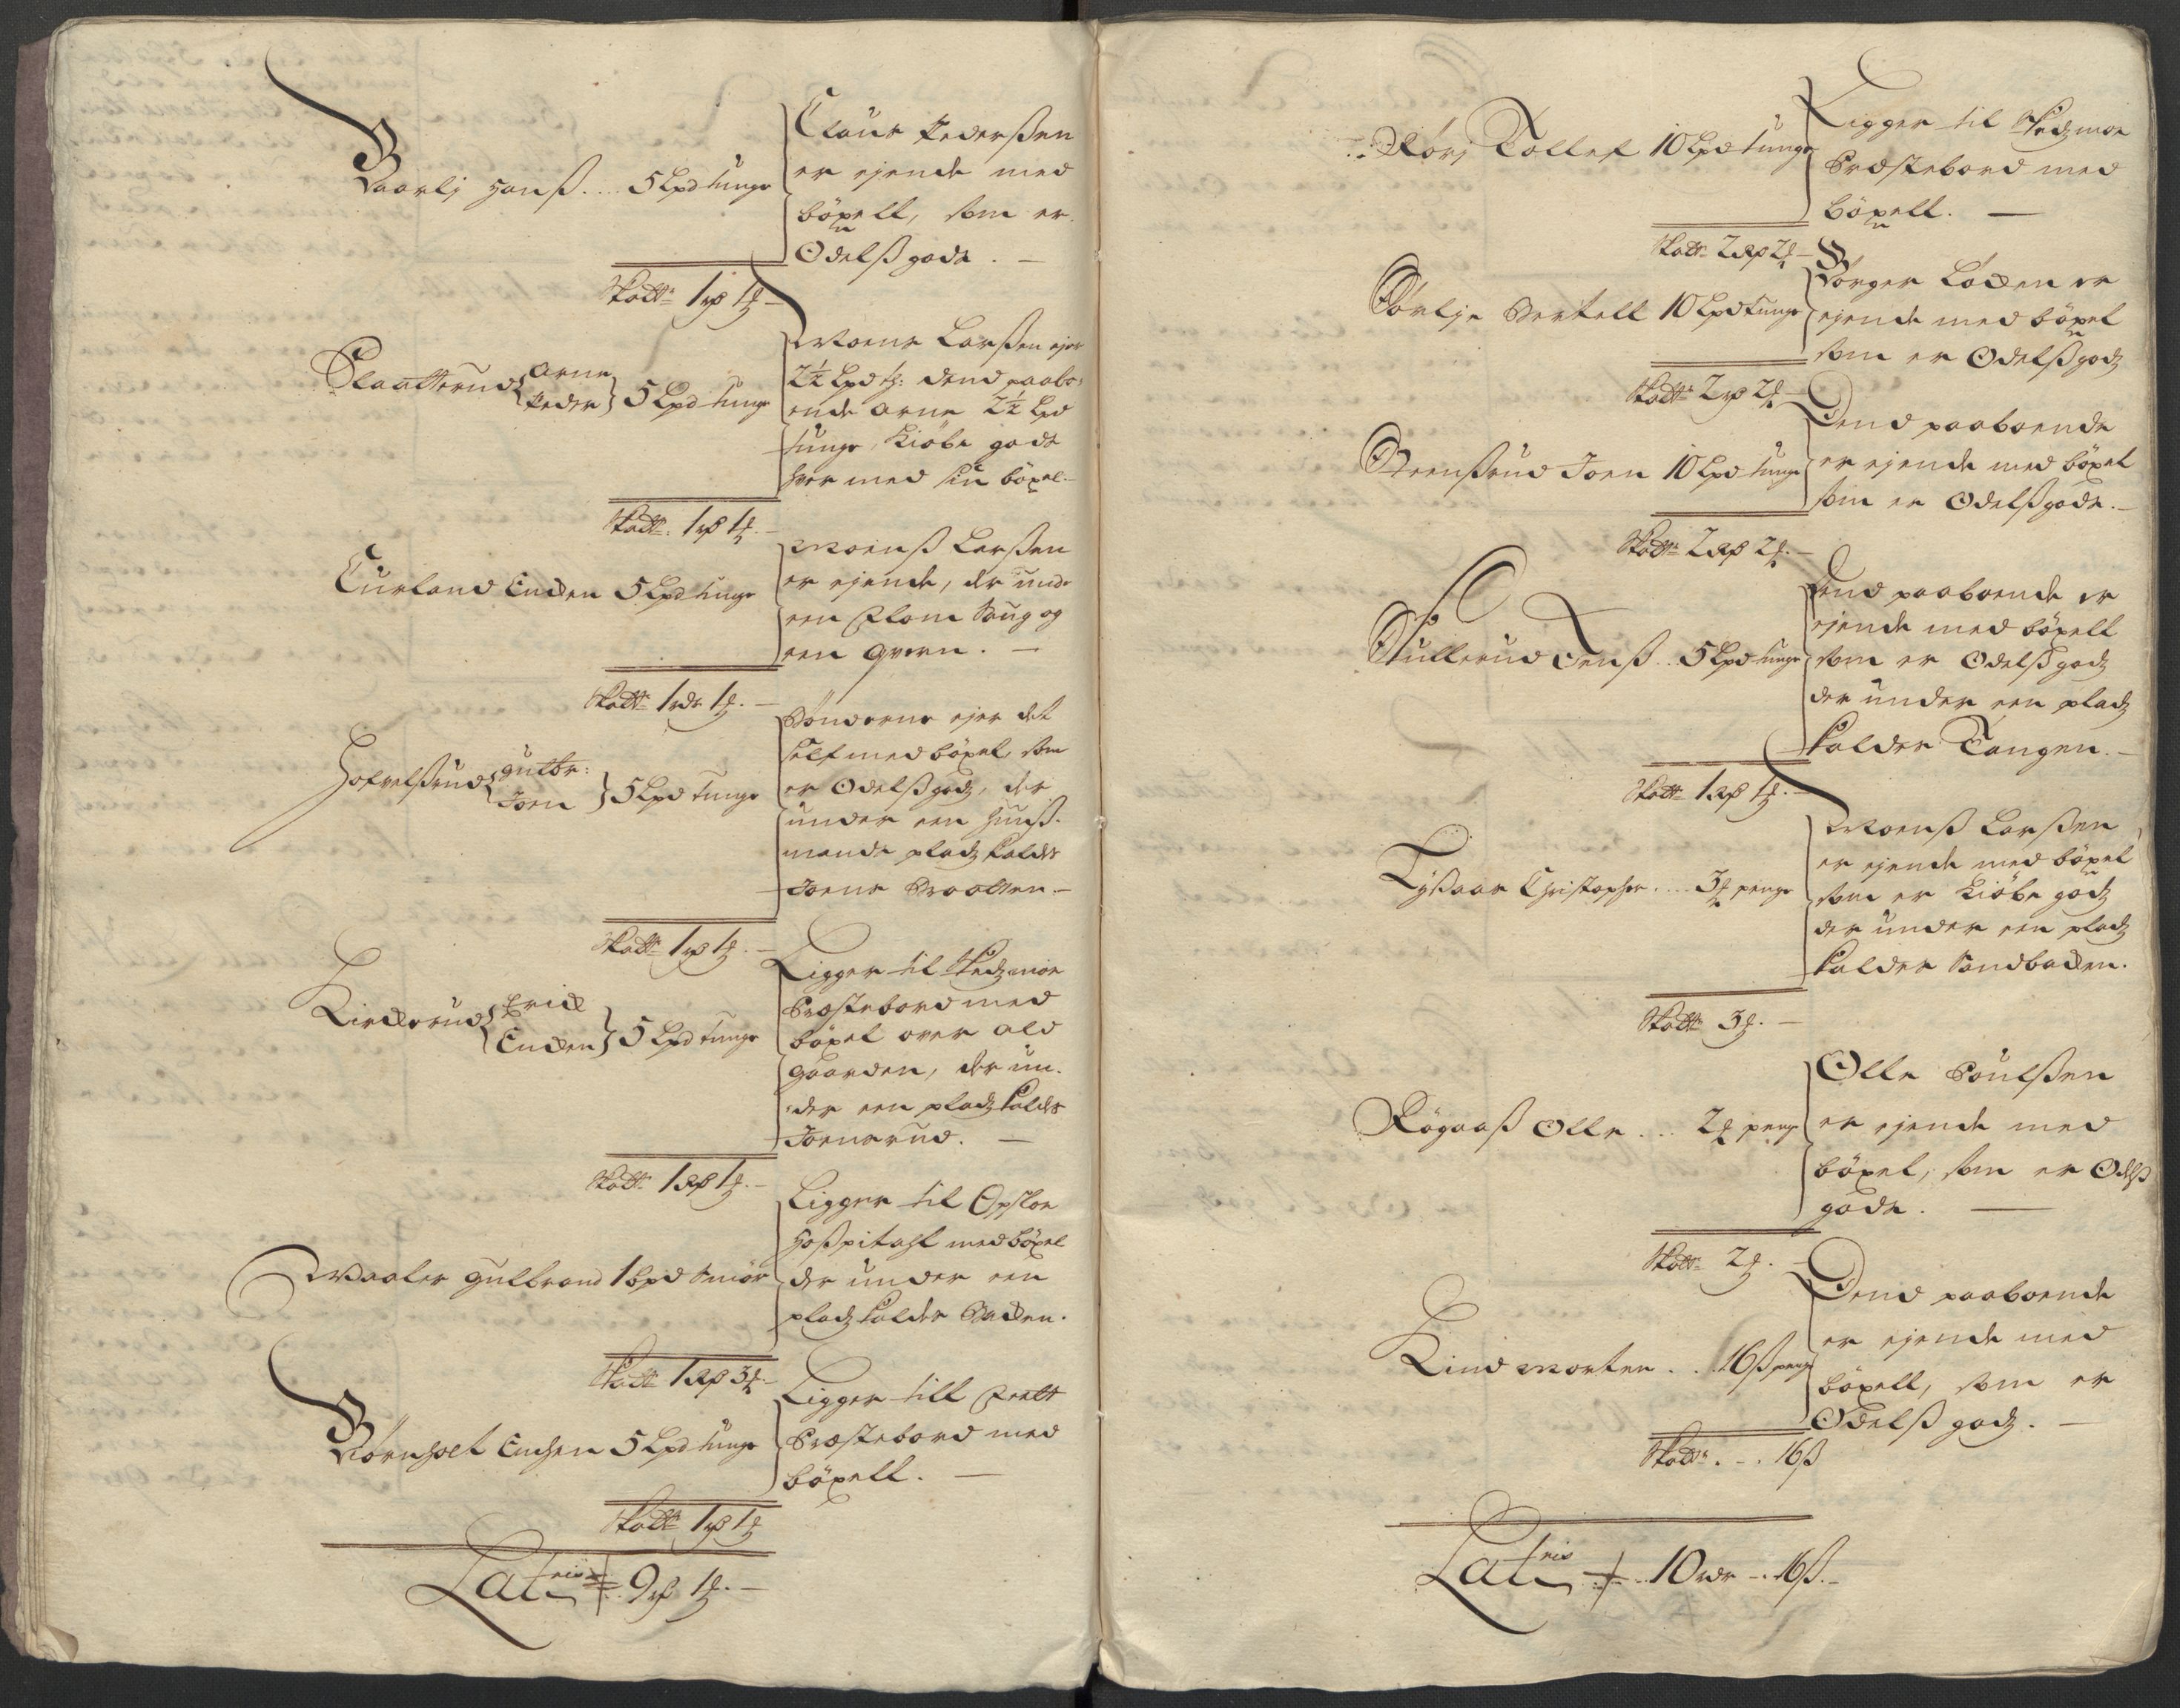 Baarlj Hanß .... 5 Lpd tunge
Claus Pederßen
er ejende med
böxell, som er
Odelßgods. —
Skatt: 1 rd 1 ℔ —
Slaatterud Arne
Peder 5 Lpd tunge
Moens Larßen ejer
2½ Lpd t: dend paabo-
ende Arne 2½ Lpd
tunge, Kiöbe gods
hver med sin böxel. —
Skatt: 1 rd 1 ℔ —
Curland Endken 5 Lpd tunge
Moenß Larßen
er ejende, der unde
een Flom Saug og
een Qvern. —
Skatt: 1 rdr 1 ℔. —
Hofvelßrud Gulbr:
Joen 5 Lpd tunge
Bönderne ejer det
self med böxel, som
er Odelßgodz, der
under een Huuß-
mands pladz kaldes
Joens Braatten. —
Skatt: 1 rd 1 ℔. —
Kirckerud Erick
Endken 5 Lpd tunge
Ligger til Skedsmoe
Præstebord med
böxel over ald
Gaarden, der un-
der een pladz kaldes
Joensrud. —
Skatt: 1 Rd 1 ℔. —
Waaler Gulbrand 1 Bpd Smör
Ligger til Opsloe
Hoßpitahl med böxel
der under een
pladz kaldes Backen.
Skatt 1 Rd 3 ℔. —
Börnholt Endken 5 Lpd tunge
Ligger till Feedt
Præstebord med
böxell. —
Skatt: 1 rd 1 ℔
Lateris 9 rd 1 ℔. —
Rörj Tollef 10 Lpd tunge
Ligger til Skedsmoe
Præstebord med
böxell. —
Skatt: 2 Rd 2 ℔ —
Börlje Bertell 10 Lpd tunge
Börger Locken er
ejende med böxel
som er Odelßgodz
Skatt: 2 rd 2 ℔ —
Steenßrud Joen 10 Lpd tunge
Dend paaboende
er ejende med böxel
som er Odelßgods. —
Skatt: 2 Rd 2 ℔. —
Stullerud Jenß .. 5 Lpd tunge
Dend paaboende er
ejende med böxell
som er Odelß godz
der under een pladz
kaldes Tangen. —
Skatt: 1 Rd 1 ℔. —
Tysaar Christopher .... 3 ℔ penge
Moenß Larßen
er ejende med böxel
som er Kiöbe godz
der under een pladz
kaldes Sandbacken.
Skatt: 3 ℔. —
Rögaaß Olle ... 2 ℔ penge
Olle Poulßen
er ejende med
böxel, som er Odelß
gods. —
Skatt: 2 ℔. —
Kind Morten . . . 16 ß penge
Dend paaboende
er ejende med
böxell, som er
Odelß godz. —
Skatt: . . . 16 ß
Lateris .. 10 rdr — . 16 ß. —